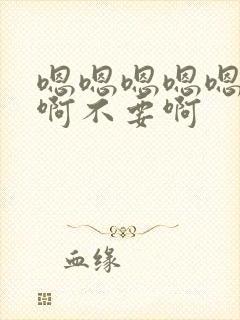 嗯嗯嗯嗯嗯
啊不要啊
血缘